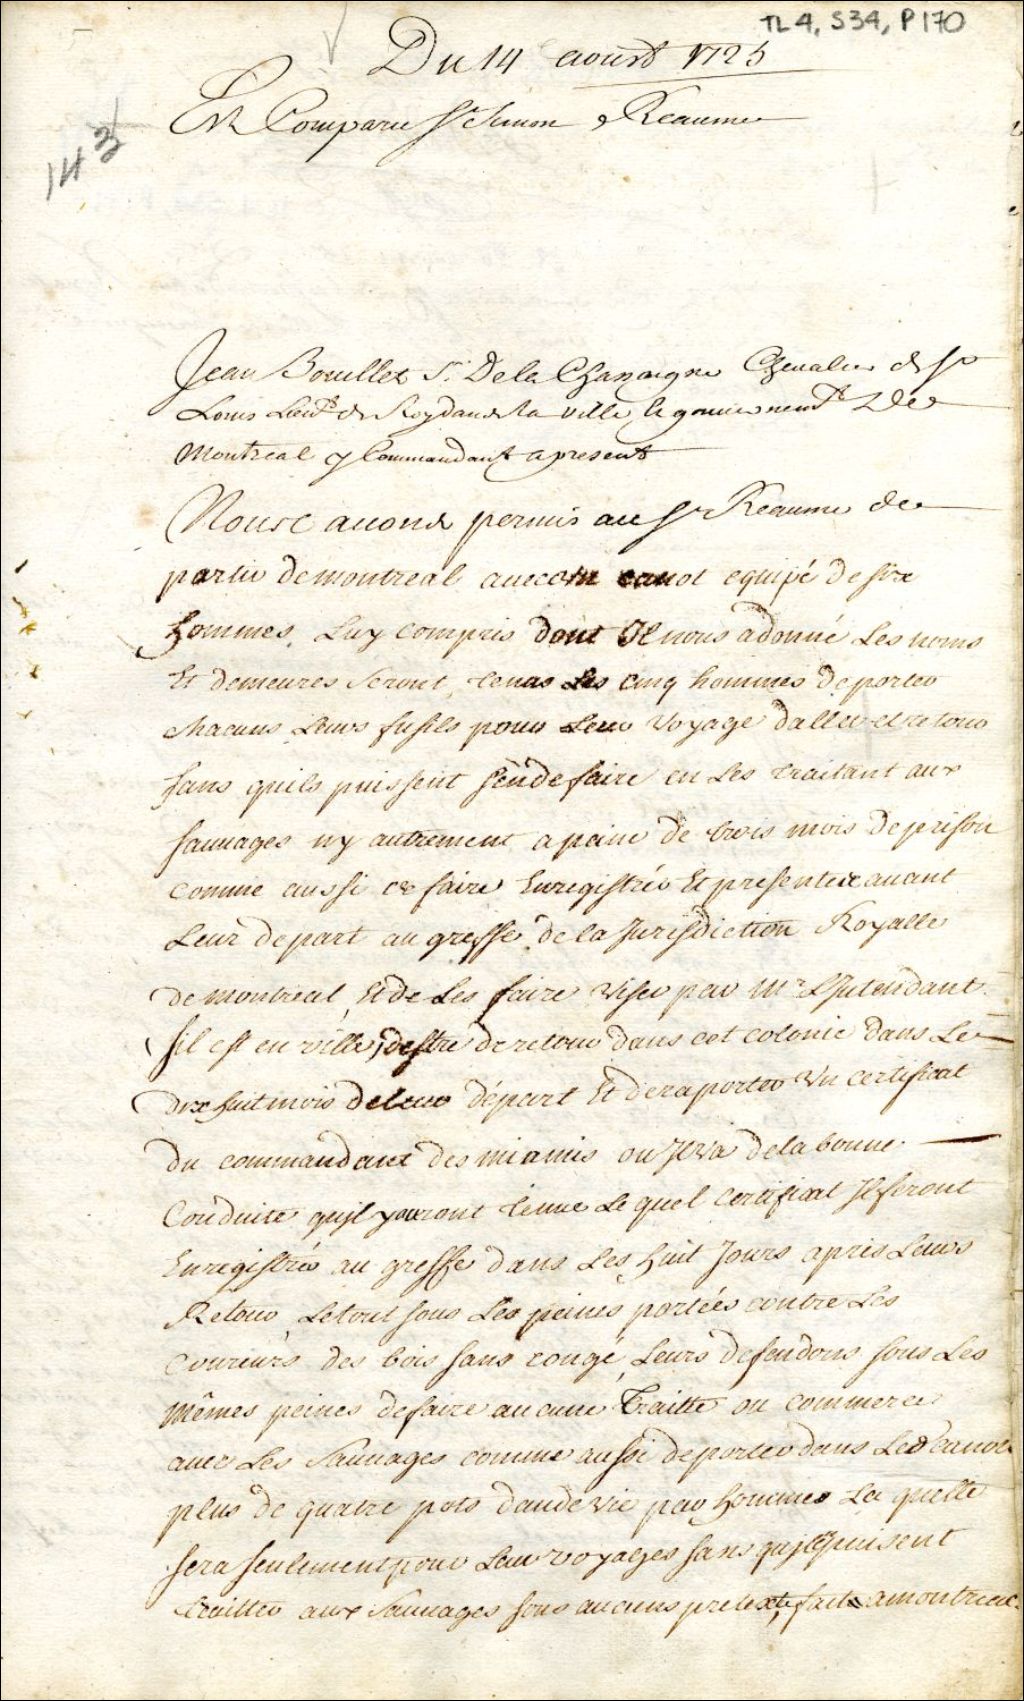 TL4, S34, P170
Du 14 aoust 1725
Est Comparu Sr Simon Reaume
143
Jean Bouillet Sr. De la Chassaigne Chevalier de St
Louis Lieut de Roy dans la ville & gouvernemt De
Montreal y Commandant apresent
Nous avons permis au Sr Reaume de
partir de montreal avec un canot equipé de six
hommes Luy compris dont Il nous a donné Les noms
Et demeures seront tenus Les cinq hommes de porter
chacuns Leurs fusils pour Leur voyage daller et retour
sans quils puissent sen de faire en Les traitant aux
sauvages ny autrement a peine de trois mois de prison
comme aussi de faire Enregistrer Et presenter avant
Leur depart au greffe de la Jurisdiction Royalle
de montreal Et de Les faire viser par Mr LJntendant
sil est en ville, destre de retour dans cet colonie dans Le
dix huit mois de leur départ Et de raporter Un certificat
du commandant des miamis ou Jl va de la bonne
Conduite qujl y auront tenue Le quel Certificat Jl feront
Enregistrer au greffe dans Les huit Jours apres Leurs
Retour, Le tout sous Les peines portées contre Les
Coureurs des bois sans congé, Leurs defendons sous Les
mêmes peines de faire aucune Traitte ou commerce
avec Les Sauvages comme aussi de porter dans Led canot
plus de quatre pots daude vie par hommes La quelle
sera seulement pour Leur voyages sans qujls puisent
traitter aux Sauvages sous aucuns pretexte, fait a montreal